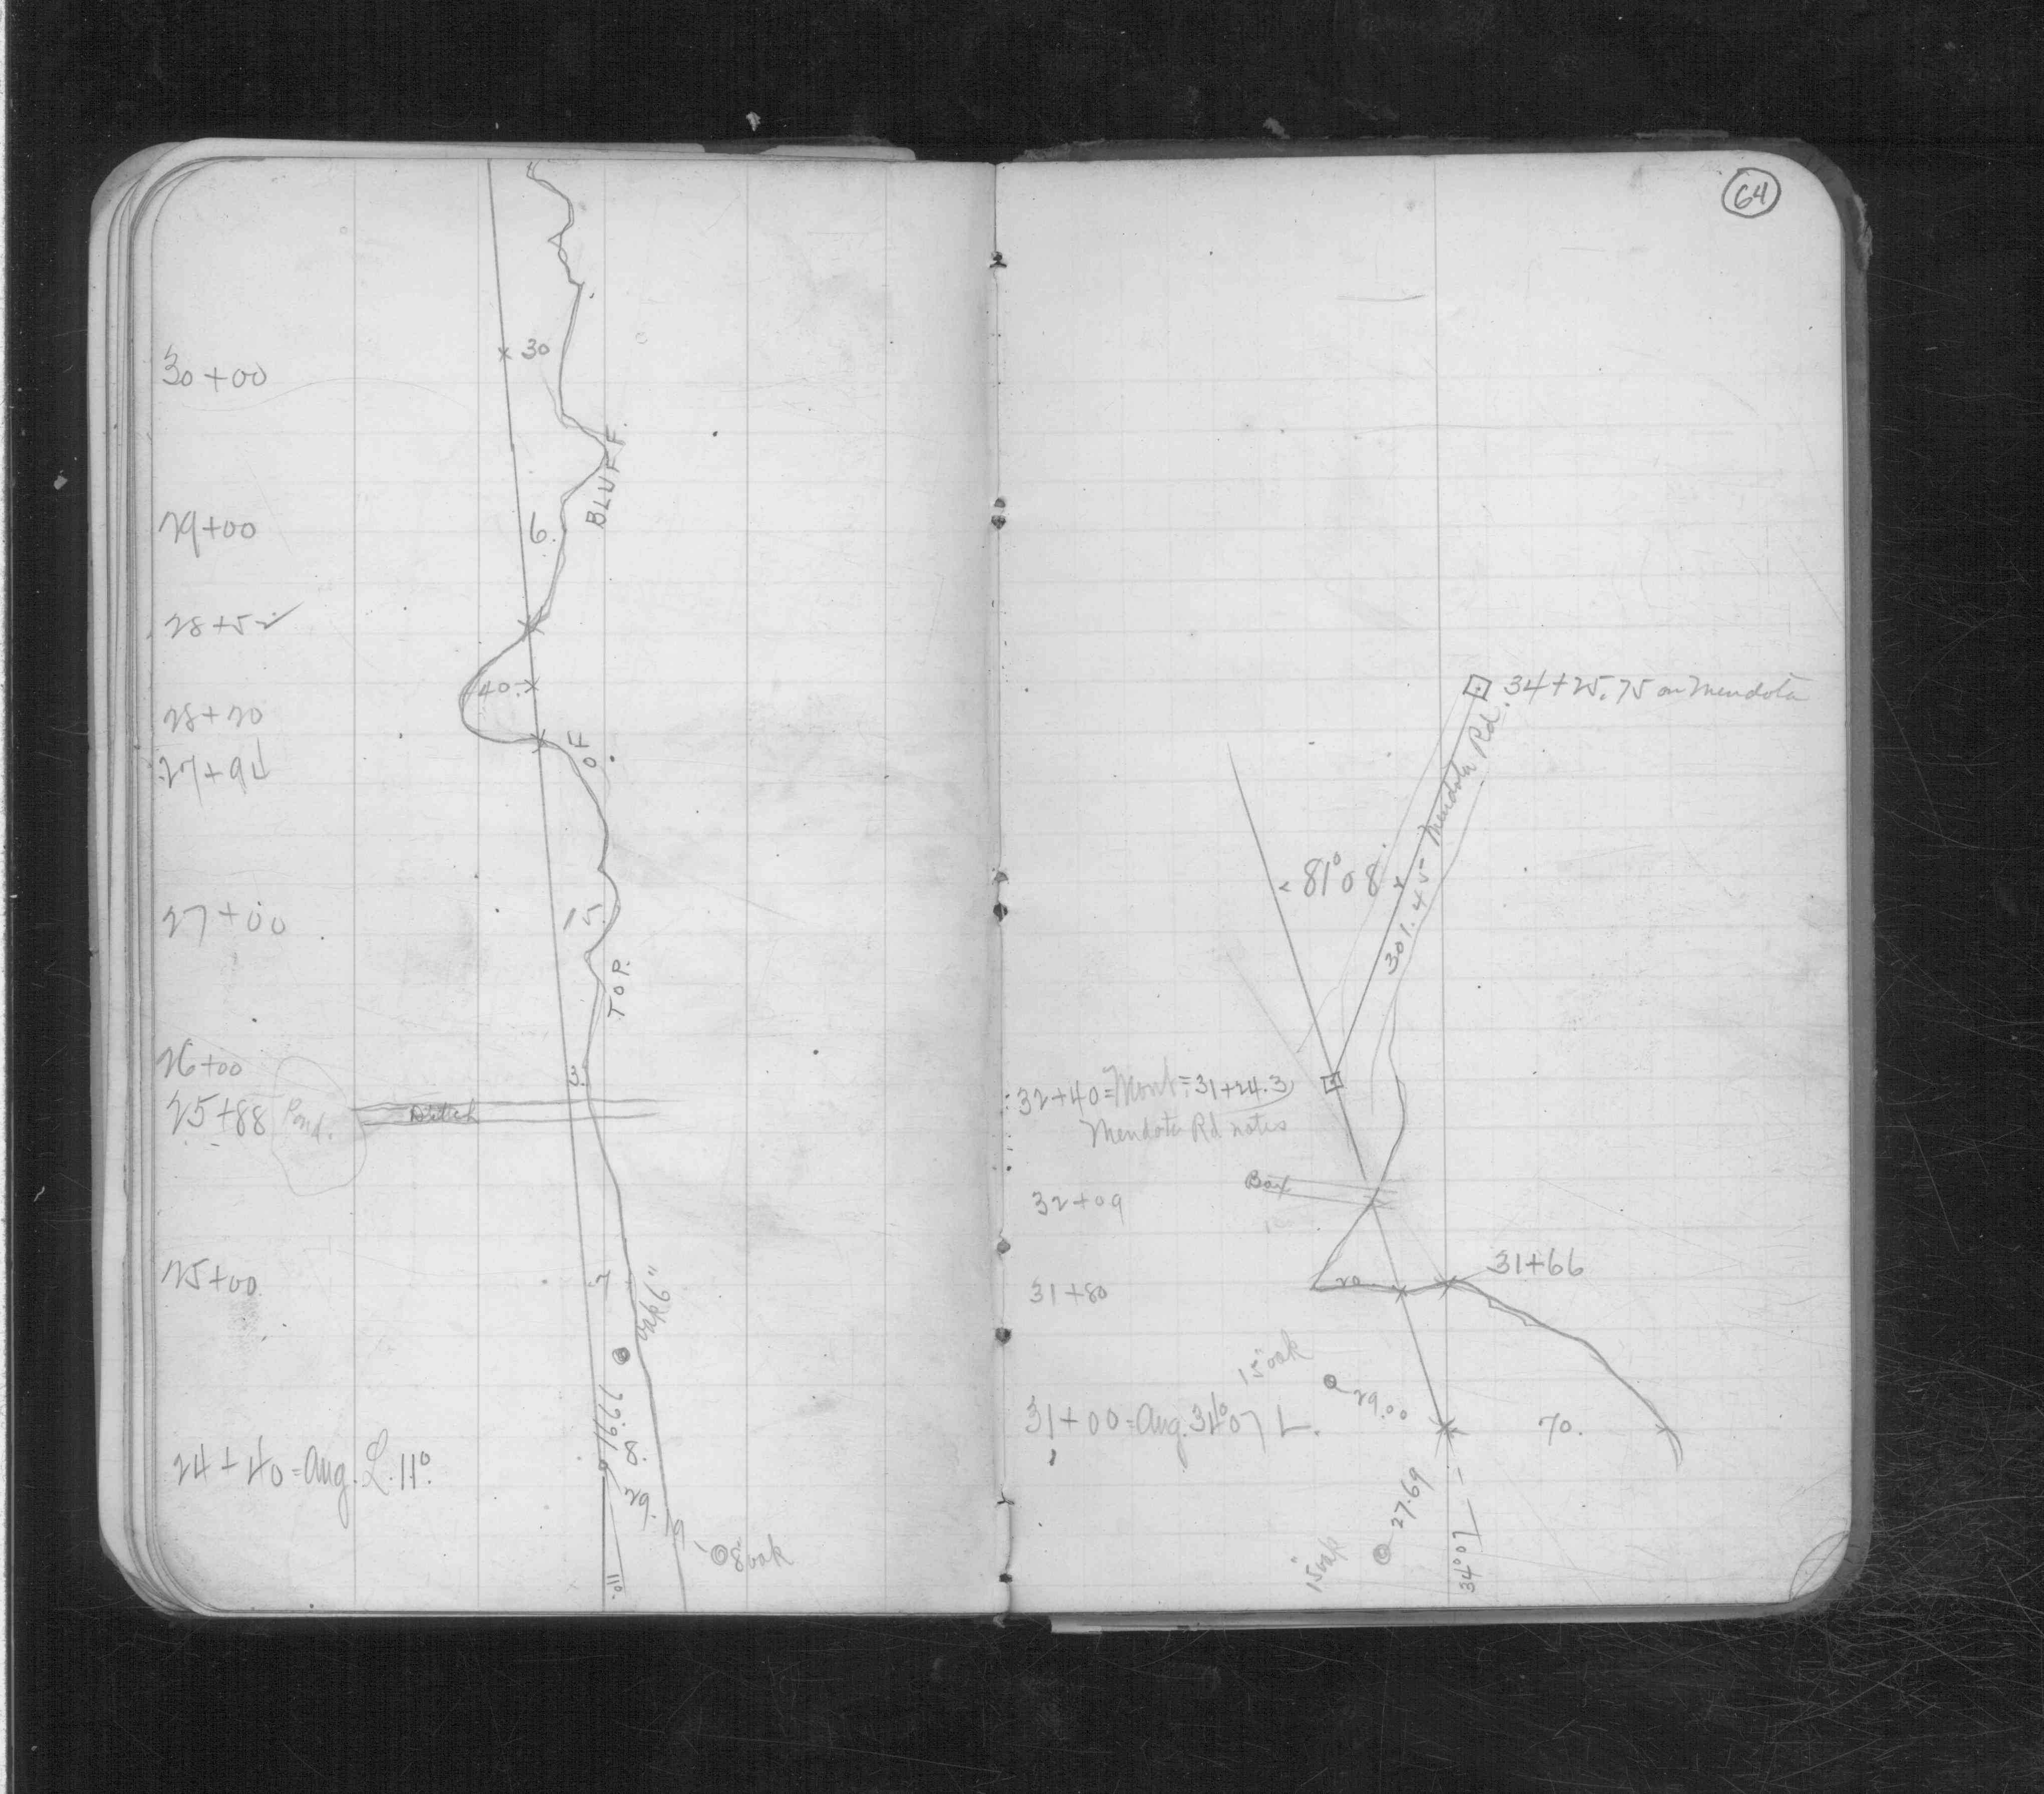 30+00
30
BLUFF.
29+00
6.
28+52
40.
28+20
OF
27+94
27+00
15.
TOP.
26+00
3.
25+88 Pond. Ditch
25+00
7
oak 6"
24+40=Ang. L. 11°.
29.
19
8" oak
11°
64
34+25.75 on Mendota
Mendota Rd.
81°08'
301.45
32+40=Mont=31+24.3
Mendota Rd notes
Box
32+09
31+66
20
31+80
15" oak
29.00
31+00=Ang. 34°07 L.
70.
27.69
15" oak
34°07 L